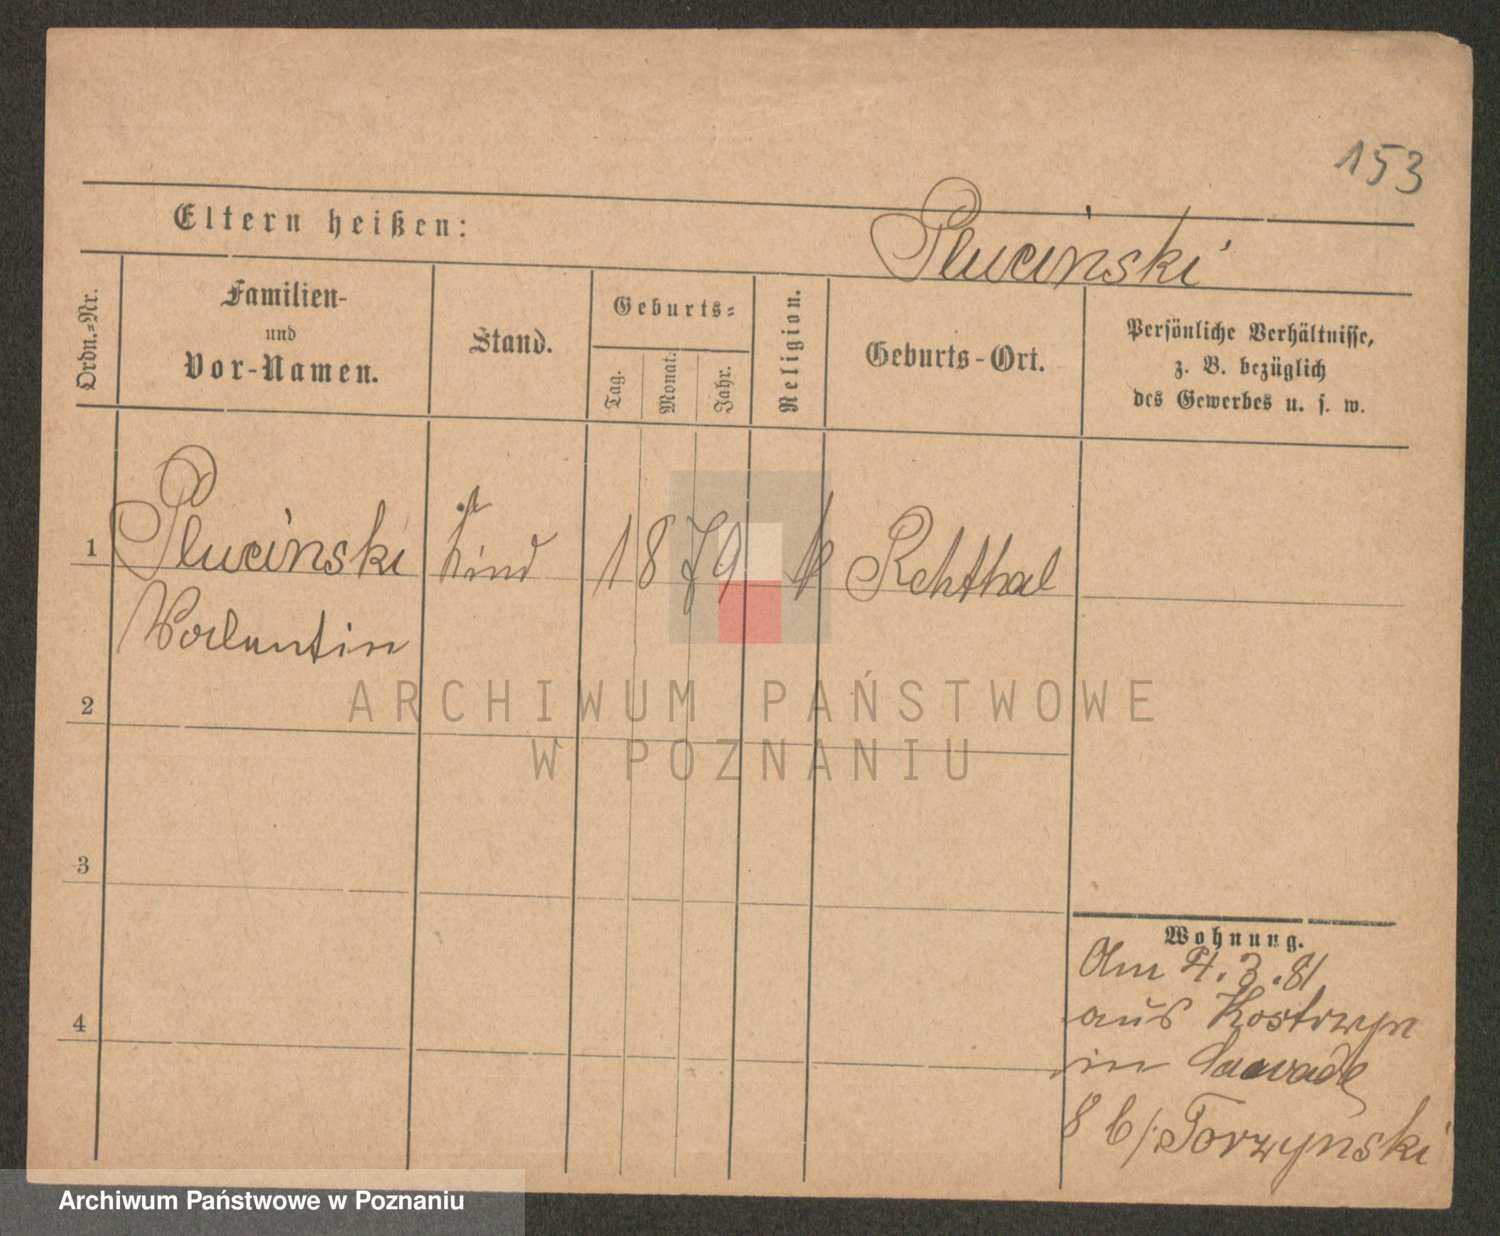 153
Eltern heißen: Plucinski
Ordn.-Nr.
Familien-
und
Vor-Namen.
Stand.
Geburts-
Tag.
Monat.
Jahr.
Religion.
Geburts-Ort.
Persönliche Verhältnisse,
z. B. bezüglich
des Gewerbes u. s. w.
1 Plucinski Kind 1879 k Rehthal
Valentin
2
3
4
Wohnung.
Am 4.3.81
aus Kostrzyn
in
8 b/. Torzynski
ARCHIWUM PAŃSTWOWE
W POZNANIU
Archiwum Państwowe w Poznaniu